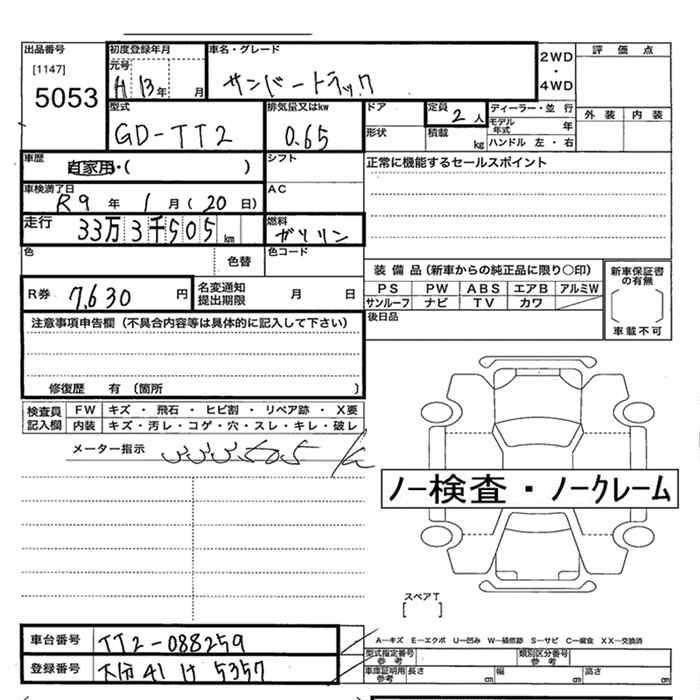 出品番号 初度登録年月 車名・グレード 2WD ・ 4WD 評価点
[1147] 元号 H13年 月 サンバートラック
5053
型式 排気量又はkw ドア 定員 2人 ディーラー・並行 外装 内装
GD-TT2 0.65 形状 積載 kg モデル年式 年
ハンドル 左・右
車歴 自家用・( ) シフト 正常に機能するセールスポイント
車検満了日 AC
R9年 1月(20日)
走行 33万3千505km 燃料 ガソリン
色 色替 色コード
装備品(新車からの純正品に限り○印) 新車保証書の有無
R券 7,630円 名変通知提出期限 月 日 PS PW ABS エアB アルミW
サンルーフ ナビ TV カワ 車載不可
注意事項申告欄(不具合内容等は具体的に記入して下さい) 後日品
修復歴 有(箇所 )
検査員記入欄 FW キズ・飛石・ヒビ割・リペア跡・X要
内装 キズ・汚レ・コゲ・穴・スレ・キレ・破レ
メーター指示 333505 k
ノー検査・ノークレーム
スペアT
[ ]
A−キズ E−エクボ U−凹み W−補修跡 S−サビ C−腐食 XX−交換済
車台番号 TT2-088259 型式指定番号 参考 類別区分番号 参考
登録番号 大分41け5357 車庫証明用 参考 長さ cm 幅 cm 高さ cm